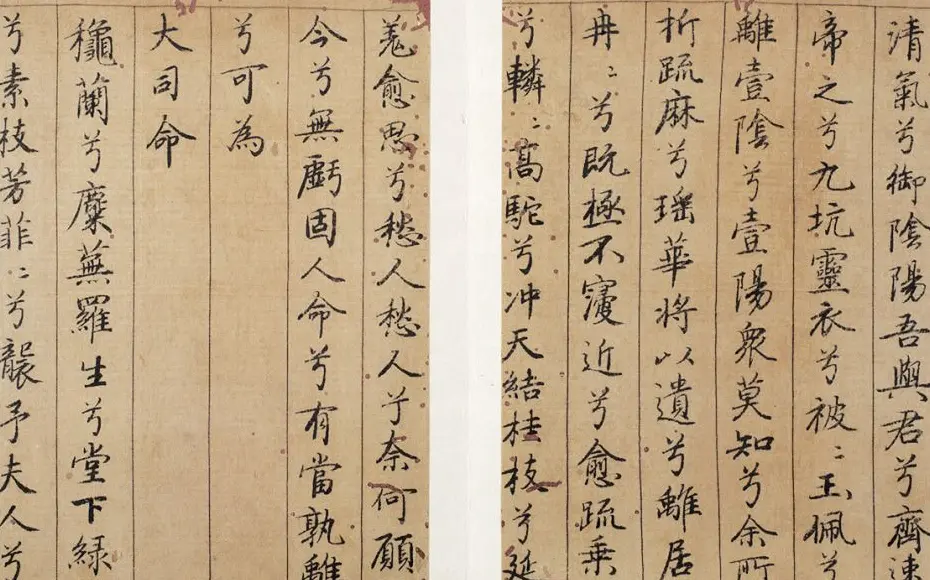 清氣兮御陰陽吾與君兮齊速
帝之兮九坑靈衣兮被〻玉佩兮
離壹陰兮壹陽衆莫知兮余所
折疏麻兮瑶華將以遺兮離居
冉〻兮既極不寖近兮愈疏乗
兮轔〻高駝兮冲天結桂枝兮延
羗愈思兮愁人愁人兮奈何願
今兮無虧固人命兮有當孰離
兮可為
大司命
龝蘭兮麋蕪羅生兮堂下緑
兮素枝芳菲〻兮襲予夫人兮